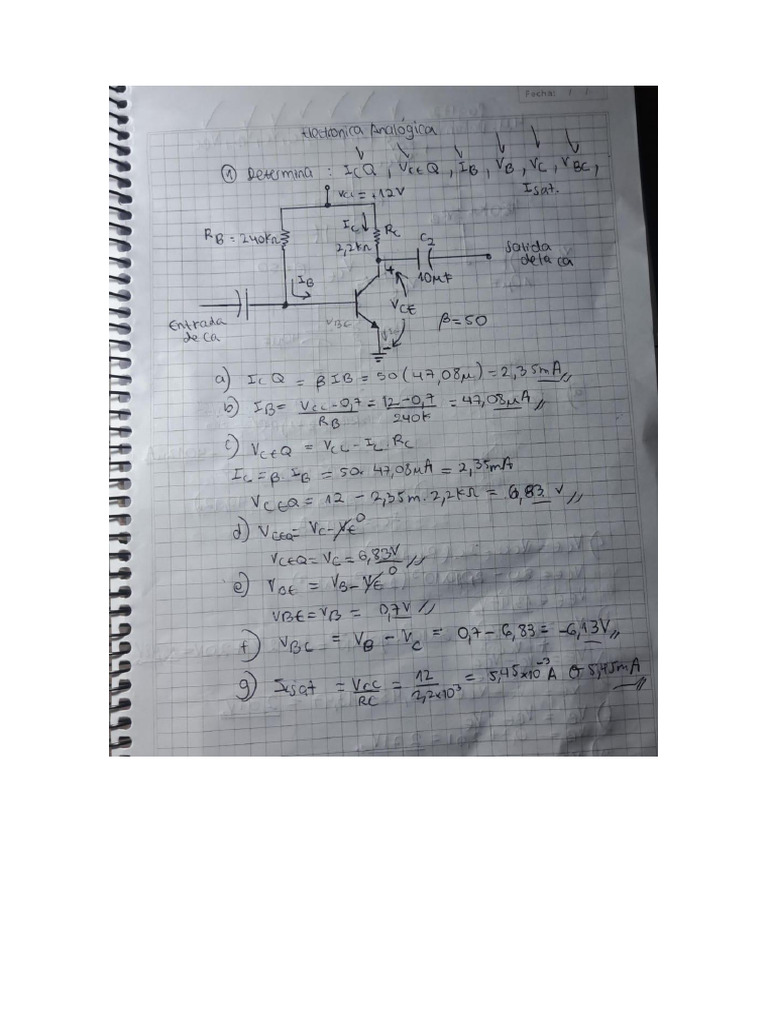 Fecha: / /
Electronica Analógica
① Determina : ICQ , VCEQ , IB , VB , VC , VBC ,
Isat.
VCC = +12V
RB = 240kΩ
IC
RC
2,2kΩ
C2
10μF
Salida
de la ca
IB
VCE
VBC
β = 50
Entrada
de ca
a) ICQ = β IB = 50 (47,08μ) = 2,35mA //
b) IB = VCC - 0,7 / RB = 12 - 0,7 / 240k = 47,08μA //
c) VCEQ = VCC - IC . RC
IC = β . IB = 50 . 47,08μA = 2,35mA
VCEQ = 12 - 2,35m . 2,2kΩ = 6,83 V //
d) VCEQ = VC - VE 0
VCEQ = VC = 6,83V //
e) VBE = VB - VE 0
VBE = VB = 0,7V //
f) VBC = VB - VC = 0,7 - 6,83 = -6,13V //
g) Isat = VCC / RC = 12 / 2,2x10³ = 5,45x10⁻³ A o 5,45mA //